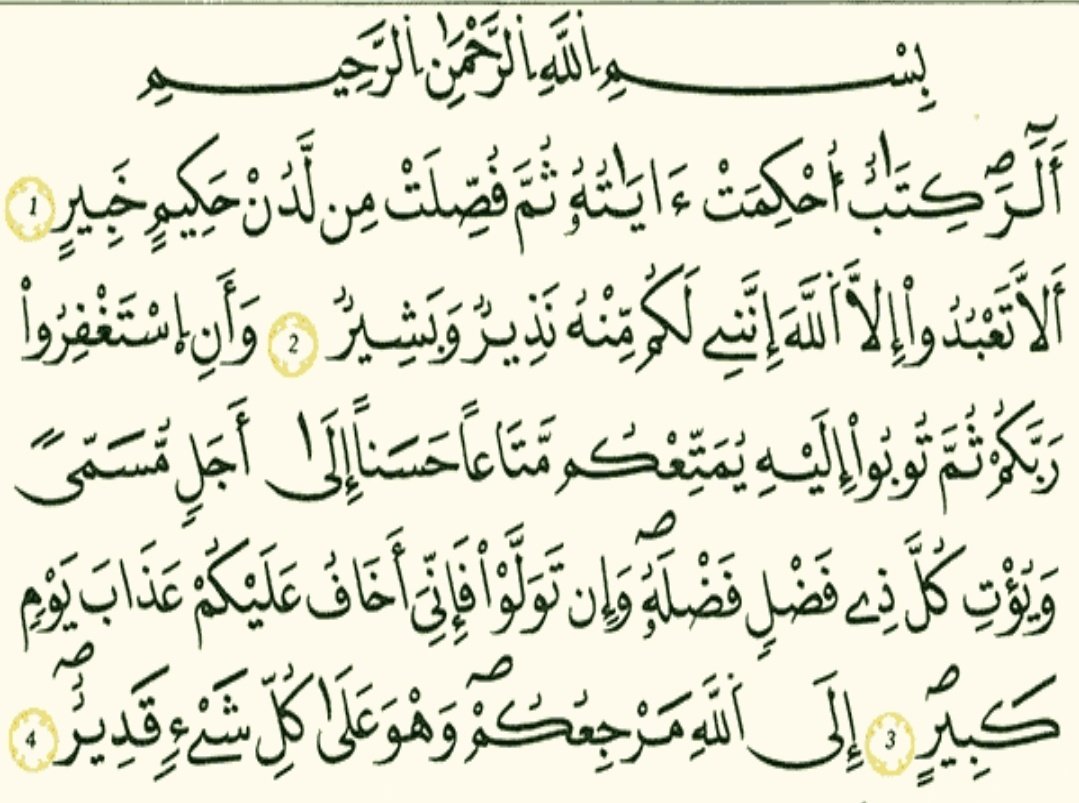 بِسْمِ اِ۬للَّهِ اِ۬لرَّحْمَٰنِ اِ۬لرَّحِيمِ
أَلَٓرَۖ كِتَٰبٌ اُحْكِمَتْ ءَايَٰتُهُۥ ثُمَّ فُصِّلَتْ مِن لَّدُنْ حَكِيمٍ خَبِيرٍ 1
أَلاَّ تَعْبُدُوٓاْ إِلاَّ اَ۬للَّهَ إِنَّنِے لَكُم مِّنْهُ نَذِيرٌ وَبَشِيرٌ 2 وَأَنِ اِ۪سْتَغْفِرُواْ
رَبَّكُمْ ثُمَّ تُوبُوٓاْ إِلَيْهِ يُمَتِّعْكُم مَّتَٰعاً حَسَناً إِلَىٰٓ أَجَلٍ مُّسَمّىً
وَيُؤْتِ كُلَّ ذِے فَضْلٍ فَضْلَهُۥۖ وَإِن تَوَلَّوْاْ فَإِنِّيَ أَخَافُ عَلَيْكُمْ عَذَابَ يَوْمٍ
كَبِيرٍۖ 3 إِلَى اَ۬للَّهِ مَرْجِعُكُمْۖ وَهْوَ عَلَىٰ كُلِّ شَےْءٍ قَدِيرٌۖ 4